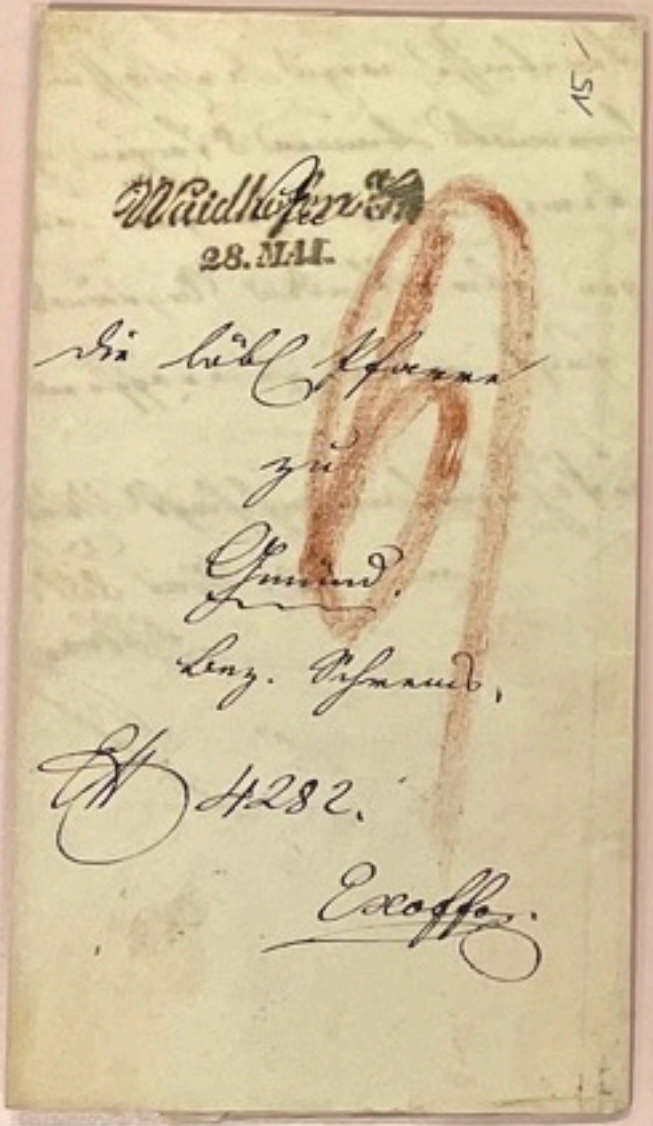 15
Waidhofen
28. MAI.
An
die löbl Pfarre
zu
Gmünd.
Bez. Schrems.
4282.
Exoffo.